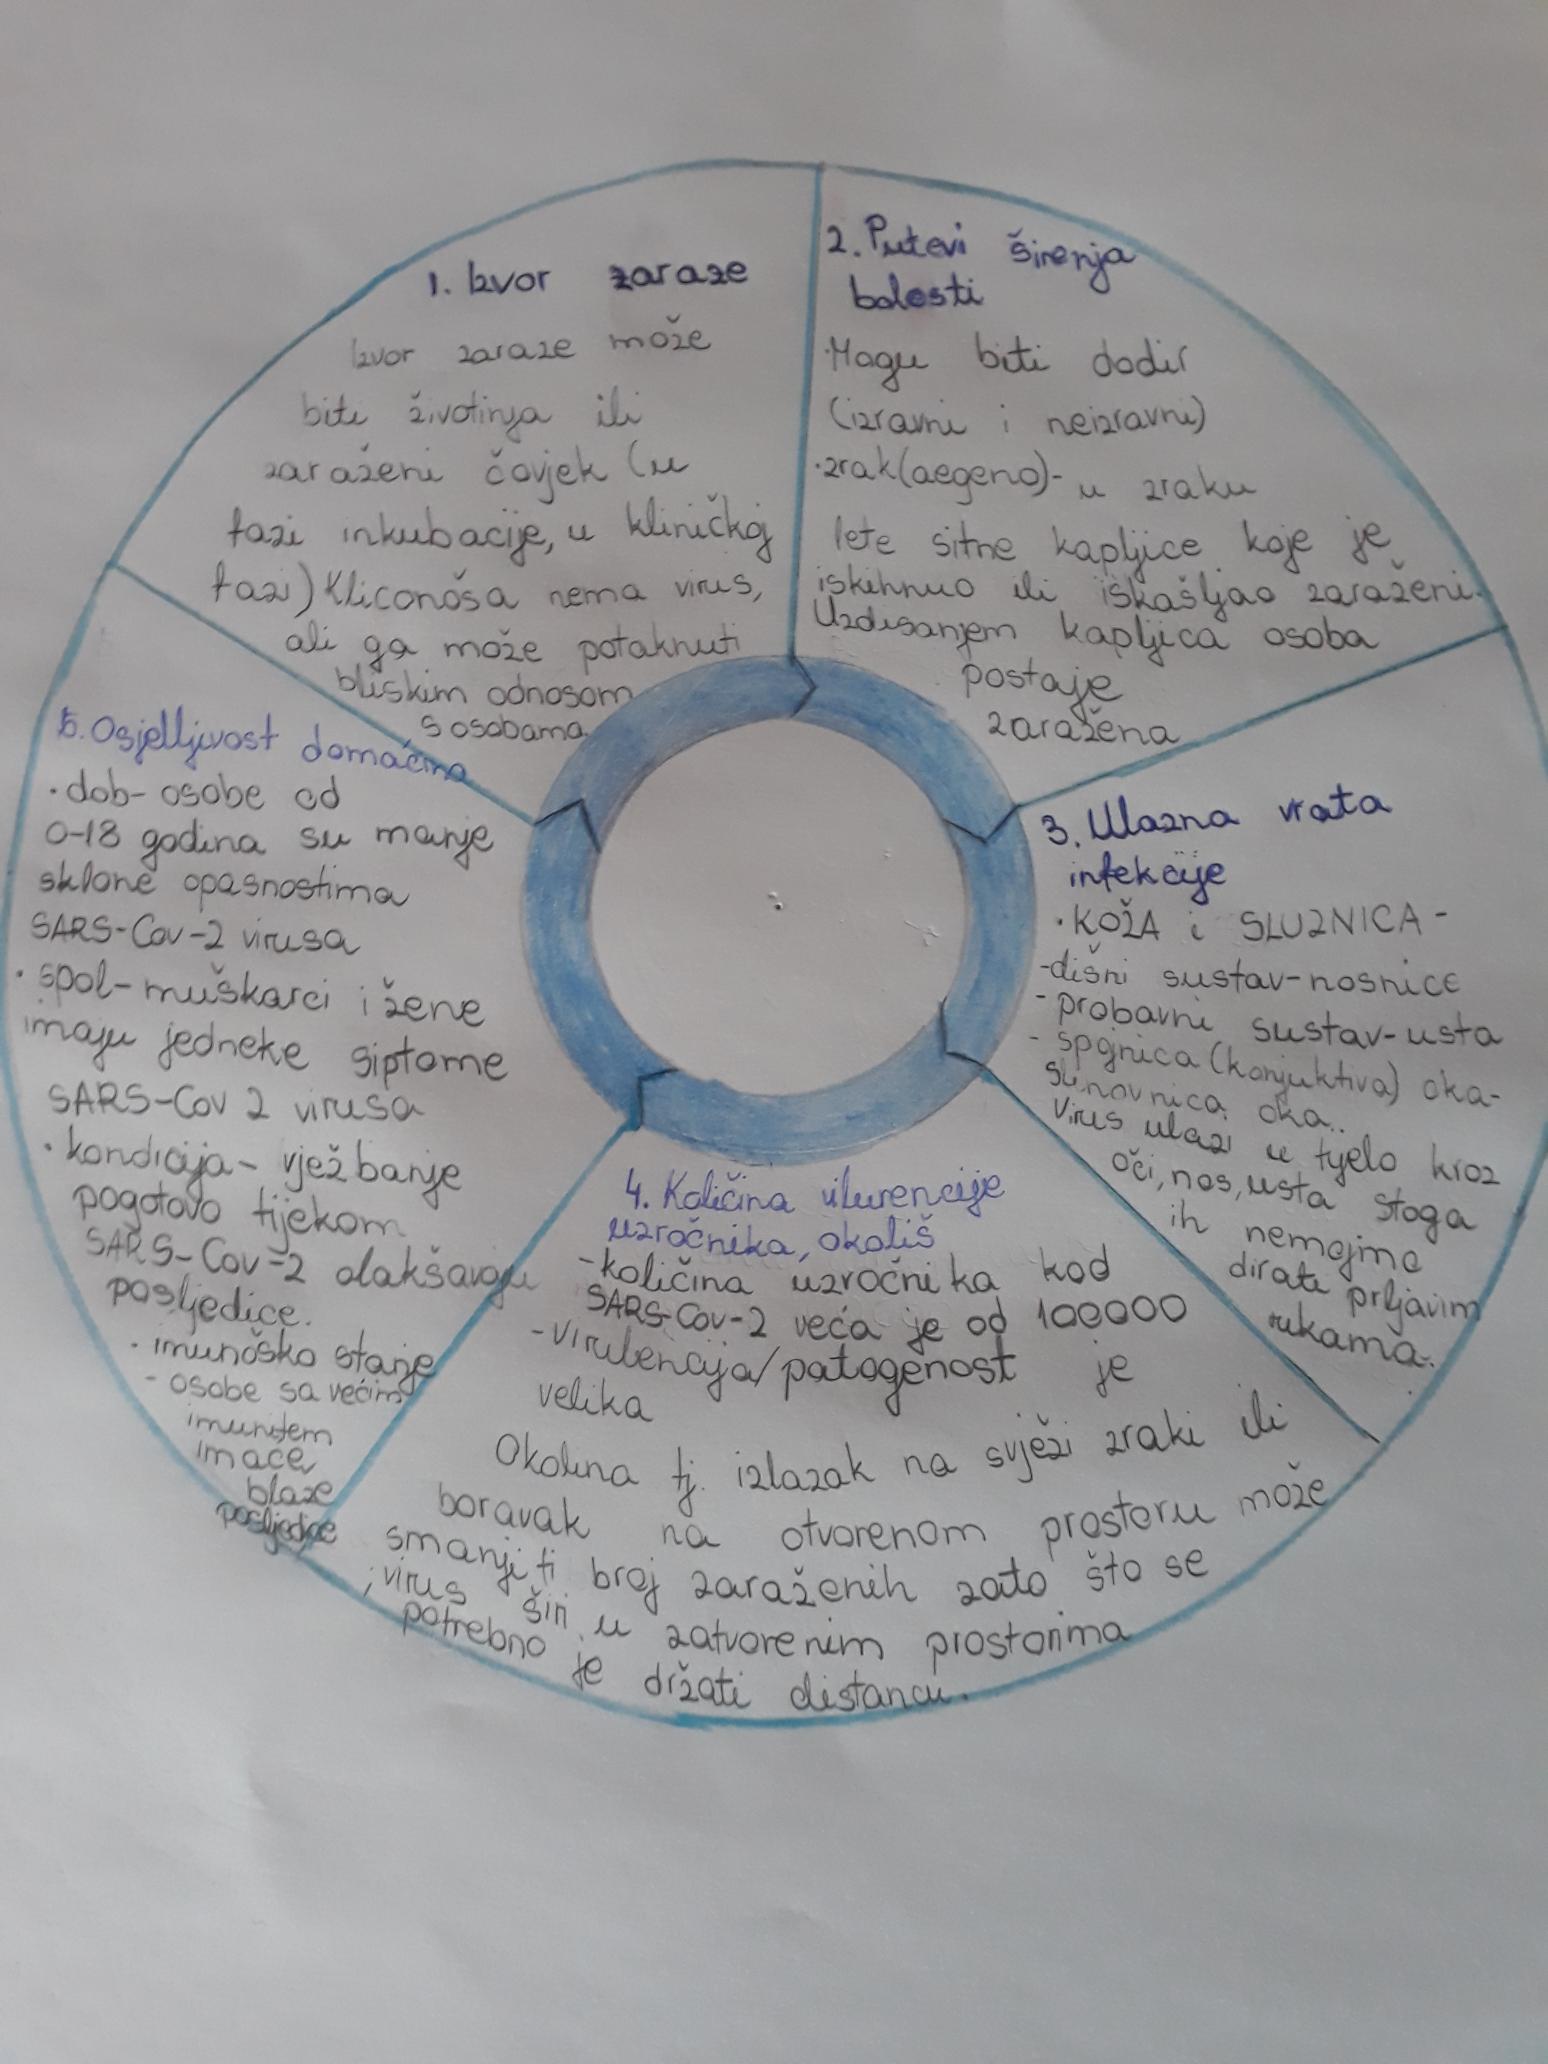 1. Izvor zaraze
Izvor zaraze može
biti životinja ili
zaraženi čovjek (u
fazi inkubacije, u kliničkoj
fazi) Kliconoša nema virus,
ali ga može potaknuti
bliskim odnosom
s osobama
2. Putevi širenja
bolesti
•Mogu biti dodir
(izravni i neizravni)
•zrak(aegeno)- u zraku
lete sitne kapljice koje je
iskihnuo ili iskašljao zaraženi.
Uzdisanjem kapljica osoba
postaje
zaražena
3. Ulazna vrata
infekcije
•KOŽA i SLUZNICA-
-dišni sustav-nosnice
-probavni sustav-usta
-spojnica (konjuktiva) oka-
oka..
Virus ulazi u tijelo kroz
oči, nos, usta stoga
ih nemojmo
dirati prljavim
rukama.
4. Količina vilurencije
uzročnika, okoliš
-količina uzročnika kod
SARS-Cov-2 veća je od 100000
-Virulencija/patogenost je
velika
Okolina tj. izlazak na svježi zraki ili
boravak na otvorenom prostoru može
smanjiti broj zaraženih zato što se
virus širi u zatvorenim prostorima
; potrebno je držati distancu.
5. Osjelljivost domaćina
•dob- osobe od
0-18 godina su manje
sklone opasnostima
SARS-Cov-2 virusa
•spol-muškarci i žene
imaju jedneke siptome
SARS-Cov 2 virusa
•kondicija- vježbanje
pogotovo tijekom
SARS-Cov-2 olakšavaju
posljedice.
•imunoško stanje
-osobe sa većim
imunitem
imaće
blaže
posljedice